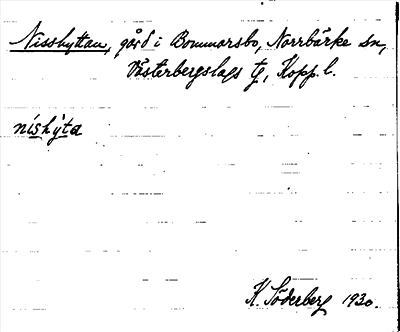 Nisshyttan, gård i Bommarsbo, Norrbärke sn,
Västerbergslags tg, Kopp. l.
nishyta
K. Söderberg 1930.